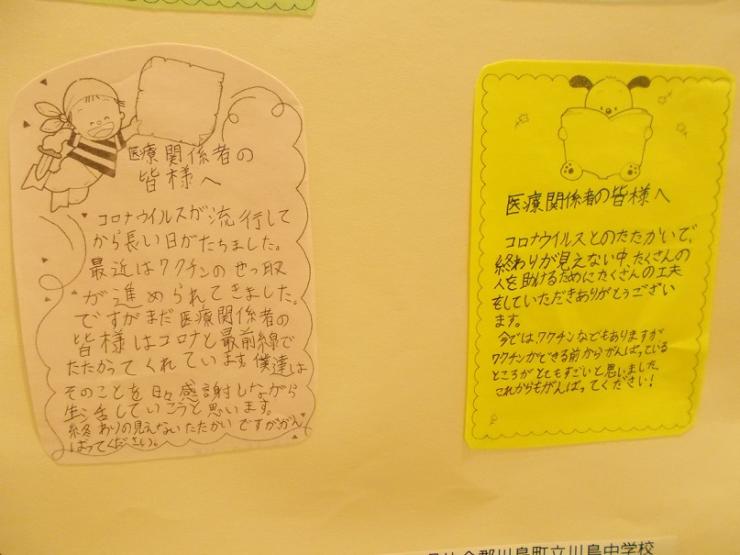 医療関係者の
皆様へ
コロナウイルスが流行して
から長い日がたちました。
最近はワクチンのせっ取
が進められてきました。
ですがまだ医療関係者の
皆様はコロナと最前線で
たたかってくれています。僕達は
そのことを日々感謝しながら
生活していこうと思います。
終わりの見えないたたかいですががん
ばってください。
医療関係者の皆様へ
コロナウイルスとのたたかいで、
終わりが見えない中、たくさんの
人を助けるためにたくさんの工夫
をしていただきありがとうござい
ます。
今ではワクチンなどもありますが
ワクチンができる前からがんばっている
ところがとてもすごいと思いました。
これからもがんばってください!
郡川島町立川島中学校